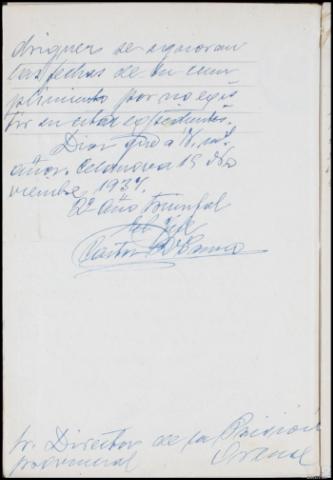 drigues se ignoran
las fechas de su cum
plimiento por no exis
tir en citado expediente.
Dios gde a V. m.s
años. Celanova 15 No
viembre 1937.
2º Año Triunfal
El Jefe
Sr. Director de la Prisión
provincial Orense